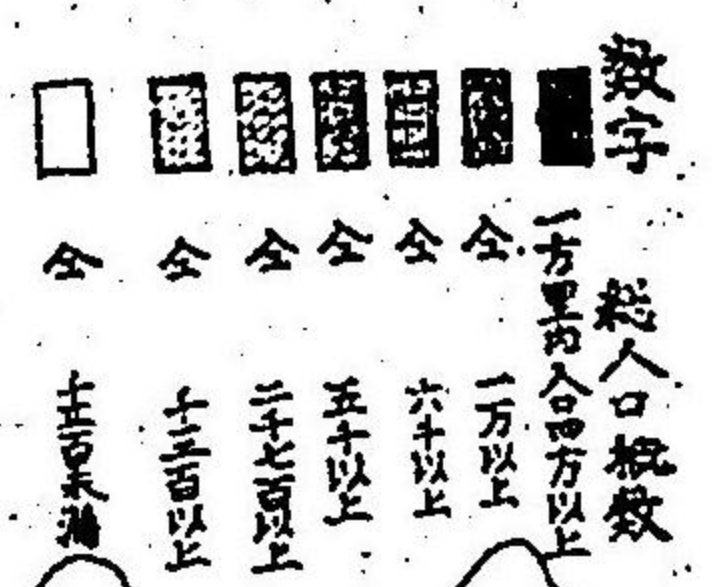 数字　総人口概数
一方里内人口四万以上
仝　一万以上
仝　六千以上
仝　五千以上
仝　二千七百以上
仝　千三百以上
仝　千三百未満